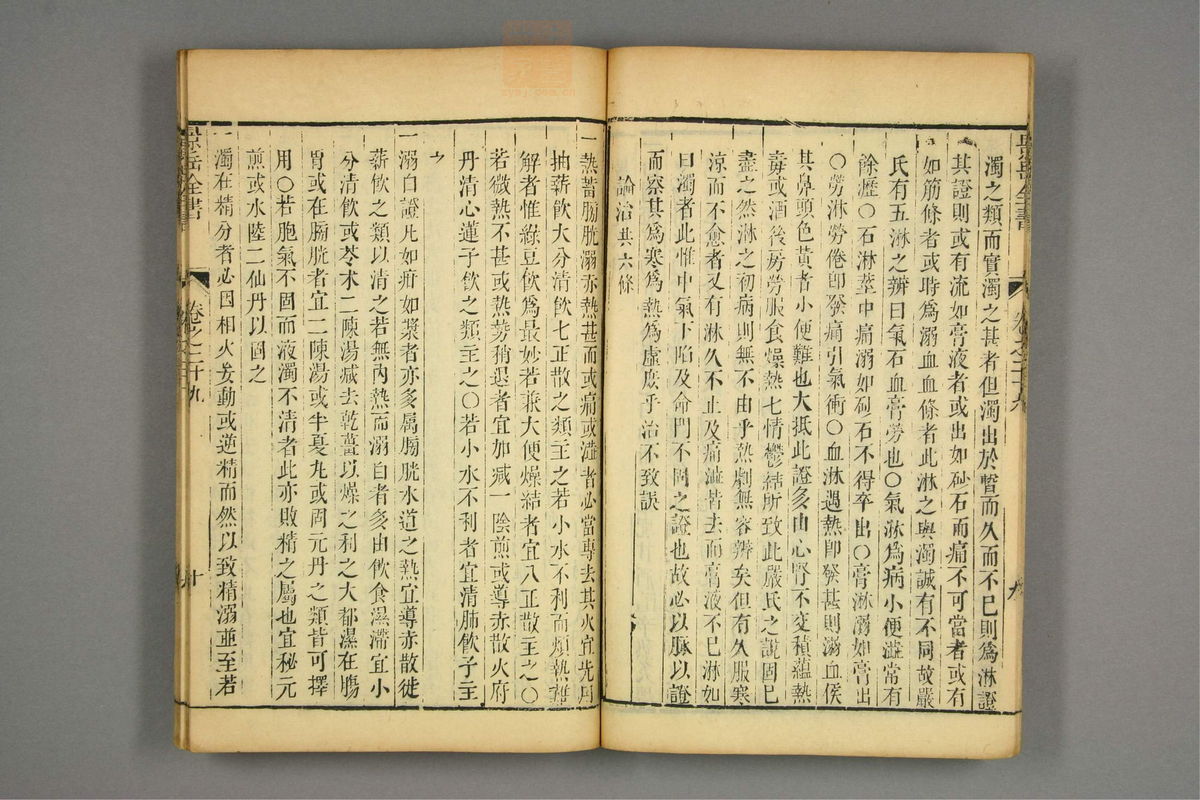 濁之類而實濁之甚者但濁出於暫而久而不已則爲淋證
其證則或有流如膏液者或出如砂石而痛不可當者或有
如筋條者或時爲溺血血條者此淋之與濁誠有不同故嚴
氏有五淋之辨曰氣石血膏勞也〇氣淋爲病小便澁常有
餘瀝〇石淋莖中痛溺如砂石不得卒出〇膏淋溺如膏出
〇勞淋勞倦卽發痛引氣衝〇血淋遇熱卽發甚則溺血候
其鼻頭色黃者小便難也大抵此證多由心腎不交積蘊熱
毒或酒後房勞服食燥熱七情鬱結所致此嚴氏之說固已
盡之然淋之初病則無不由乎熱劇無容辨矣但有久服寒
涼而不愈者又有淋久不止及痛澁皆去而膏液不已淋如
白濁者此惟中氣下陷及命門不固之證也故必以脈以證
而察其爲寒爲熱爲虛庶乎治不致誤
論治共六條
一熱蓄膀胱溺赤熱甚而或痛或澁者必當專去其火宜先用
抽薪飲大分清飲七正散之類主之若小水不利而煩熱難
解者惟綠豆飲爲最妙若兼大便燥結者宜八正散主之〇
若微熱不甚或熱勢稍退者宜加減一陰煎或導赤散火府
丹清心蓮子飲之類主之〇若小水不利者宜清肺飲子主
之
一溺白證凡如泔如漿者亦多屬膀胱水道之熱宜導赤散徙
薪飲之類以清之若無內熱而溺白者多由飲食濕滯宜小
分清飲或苓朮二陳湯減去乾薑以燥之利之大都濕在腸
胃或在膀胱者宜二陳湯或半夏丸或固元丹之類皆可擇
用〇若胞氣不固而液濁不清者此亦敗精之屬也宜秘元
煎或水陸二仙丹以固之
一濁在精分者必因相火妄動或逆精而然以致精溺並至若
景岳全書
卷之二十九
十